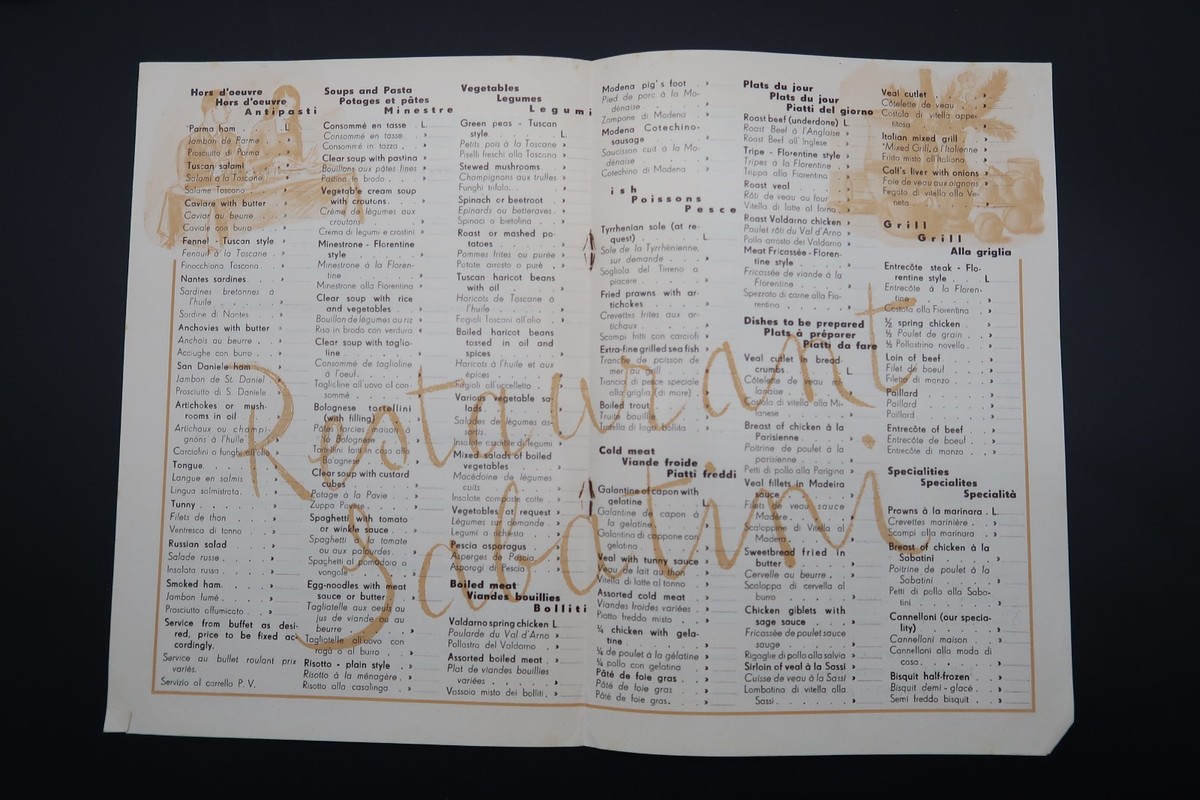 Hors d'oeuvre
Hors d'oeuvre
Antipasti
Parma ham . . . . . L.
Jambon de Parme
Prosciutto di Parma
Tuscan salami
Salami a la Toscane
Salame Toscano
Caviare with butter
Caviar au beurre
Caviale con burro
Fennel - Tuscan style
Fenouil à la Toscane
Finocchiona Toscana
Nantes sardines
Sardines bretonnes à
l'huile
Sardine di Nantes
Anchovies with butter
Anchois au beurre
Acciughe con burro
San Daniele ham
Jambon de St. Daniel
Prosciutto di S. Daniele
Artichokes or mush-
rooms in oil
Artichaux ou champi-
gnons à l'huile
Carciofini o funghetti olio
Tongue
Langue en salmis
Lingua salmistrata
Tunny
Filets de thon
Ventresca di tonno
Russian salad
Salade russe
Insalata russa
Smoked ham
Jambon fumé
Prosciutto affumicato
Service from buffet as desi-
red, price to be fixed ac-
cordingly.
Service au buffet roulant prix
variés.
Servizio al carrello P. V.
Soups and Pasta
Potages et pâtes
Minestre
Consommé en tasse . L.
Consommé en tasse
Consommé in tazza
Clear soup with pastina
Bouillons aux pâtes fines
Pastina in brodo
Vegetable cream soup
with croutons
Crème de légumes aux
croutons
Crema di legumi e crostini
Minestrone - Florentine
style
Minestrone à la Floren-
tine
Minestrone alla Fiorentina
Clear soup with rice
and vegetables
Bouillon de légumes au riz
Riso in brodo con verdura
Clear soup with taglio-
line
Consommé de taglioline
à l'oeuf
Taglioline all'uovo al con-
sommé
Bolognese tortellini
(with filling)
Pâtes farcies maison à
la Bolognese
Tortellini fatti in casa alla
Bolognese
Clear soup with custard
cubes
Potage à la Pavie
Zuppa Pavese
Spaghetti with tomato
or winkle sauce
Spaghetti à la tomate
ou aux palourdes
Spaghetti al pomodoro o
vongole
Egg-noodles with meat
sauce or butter
Tagliatelle aux oeufs au
jus de viande ou au
beurre
Tagliatelle all'uovo con
ragù o al burro
Risotto - plain style
Risotto à la ménagère
Risotto alla casalinga
Vegetables
Legumes
Legumi
Green peas - Tuscan
style . . . . . L.
Petits pois à la Toscane
Piselli freschi alla Toscana
Stewed mushrooms
Champignons aux truffes
Funghi trifola
Spinach or beetroot
Epinards ou betteraves
Spinaci o bietolina
Roast or mashed po-
tatoes
Pommes frites ou purée
Patate arrosto o purè
Tuscan haricot beans
with oil
Haricots de Toscane à
l'huile
Fagioli Toscani all'olio
Boiled haricot beans
tossed in oil and
spices
Haricots à l'huile et aux
épices
Fagioli all'uccelletto
Various vegetable sa-
lads
Salades de légumes as-
sortis
Insalate cuocine di legumi
Mixed salads of boiled
vegetables
Macédoine de légumes
cuits
Insalate composte cotte
Vegetables at request
Légumes sur demande
Legumi a richiesta
Pescia asparagus
Asperges de Pescia
Asparagi di Pescia
Boiled meat
Viandes bouillies
Bolliti
Valdarno spring chicken L.
Poularde du Val d'Arno
Pollastra del Valdarno
Assorted boiled meat
Plat de viandes bouillies
variées
Vassoio misto dei bolliti
Modena pig's foot
Pied de porc à la Mo-
dénaise
Zampone di Modena
Modena Cotechino-
sausage
Saucisson cuit à la Mo-
dénaise
Cotechino di Modena
ish
Poissons
Pesce
Tyrrhenian sole (at re-
quest) . . . . . L.
Sole de la Tyrrhènienne,
sur demande
Sogliola del Tirreno a
piacere
Fried prawns with ar-
tichokes
Crevettes frites aux ar-
tichaux
Scampi fritti con carciofi
Extra-fine grilled sea fish
Tranche de poisson de
mer au grill
Trancia di pesce speciale
alla griglia (di mare)
Boiled trout
Truite bouillie
Trotella di lago bollita
Cold meat
Viande froide
Piatti freddi
Galantine of capon with
gelatine . . . . . L.
Galantine de capon à
la gelatine
Galantina di cappone con
gelatina
Veal with tunny sauce
Veau de lait au thon
Vitella di latte al tonno
Assorted cold meat
Viandes froides variées
Piatto freddo misto
¼ chicken with gela-
tine
¼ de poulet à la gélatine
¼ pollo con gelatina
Pâté de foie gras
Pâté de foie gras
Pâté de foie gras
Plats du jour
Plats du jour
Piatti del giorno
Roast beef (underdone) L.
Roast Beef à l'Anglaise
Roast Beef all'Inglese
Tripe - Florentine style
Tripes à la Florentine
Trippa alla Fiorentina
Roast veal
Rôti de veau au four
Vitella di latte al forno
Roast Valdarno chicken
Poulet rôti du Val d'Arno
Pollo arrosto del Valdarno
Meat Fricassée - Floren-
tine style
Fricassée de viande à la
Florentine
Spezzato di carne alla Fio-
rentina
Dishes to be prepared
Plats à préparer
Piatti da fare
Veal cutlet in bread-
crumbs . . . . . L.
Côtelette de veau mi-
lanaise
Costola di vitella alla Mi-
lanese
Breast of chicken à la
Parisienne
Poitrine de poulet à la
parisienne
Petti di pollo alla Parigina
Veal fillets in Madeira
sauce
Filets de veau sauce
Madère
Scaloppine di Vitella al
Madera
Sweetbread fried in
butter
Cervelle au beurre
Scaloppa di cervella al
burro
Chicken giblets with
sage sauce
Fricassée de poulet sauce
sauge
Rigaglie di pollo alla salvia
Sirloin of veal à la Sassi
Cuisse de veau à la Sassi
Lombatina di vitella alla
Sassi
Veal cutlet
Côtelette de veau
Costola di vitella appe-
titosa
Italian mixed grill
"Mixed Grill" à l'Italienne
Fritto misto all'Italiana
Calf's liver with onions
Foie de veau aux oignons
Fegato di vitella alla Ve-
neta
Grill
Grill
Alla griglia
Entrecôte steak - Flo-
rentine style . . . L.
Entrecôte à la Floren-
tine
Costata alla Fiorentina
½ spring chicken
½ Poulet de grain
½ Pollastrino novello
Loin of beef
Filet de boeuf
Filetto di manzo
Paillard
Paillard
Paillard
Entrecôte of beef
Entrecôte de boeuf
Entrecôte di manzo
Specialities
Specialites
Specialità
Prawns à la marinara . L.
Crevettes marinière
Scampi alla marinara
Breast of chicken à la
Sabatini
Poitrine de poulet à la
Sabatini
Petti di pollo alla Saba-
tini
Cannelloni (our specia-
lity)
Cannelloni maison
Cannelloni alla moda di
casa
Bisquit half-frozen
Bisquit demi - glacé
Semi freddo bisquit
Restaurant
Sabatini